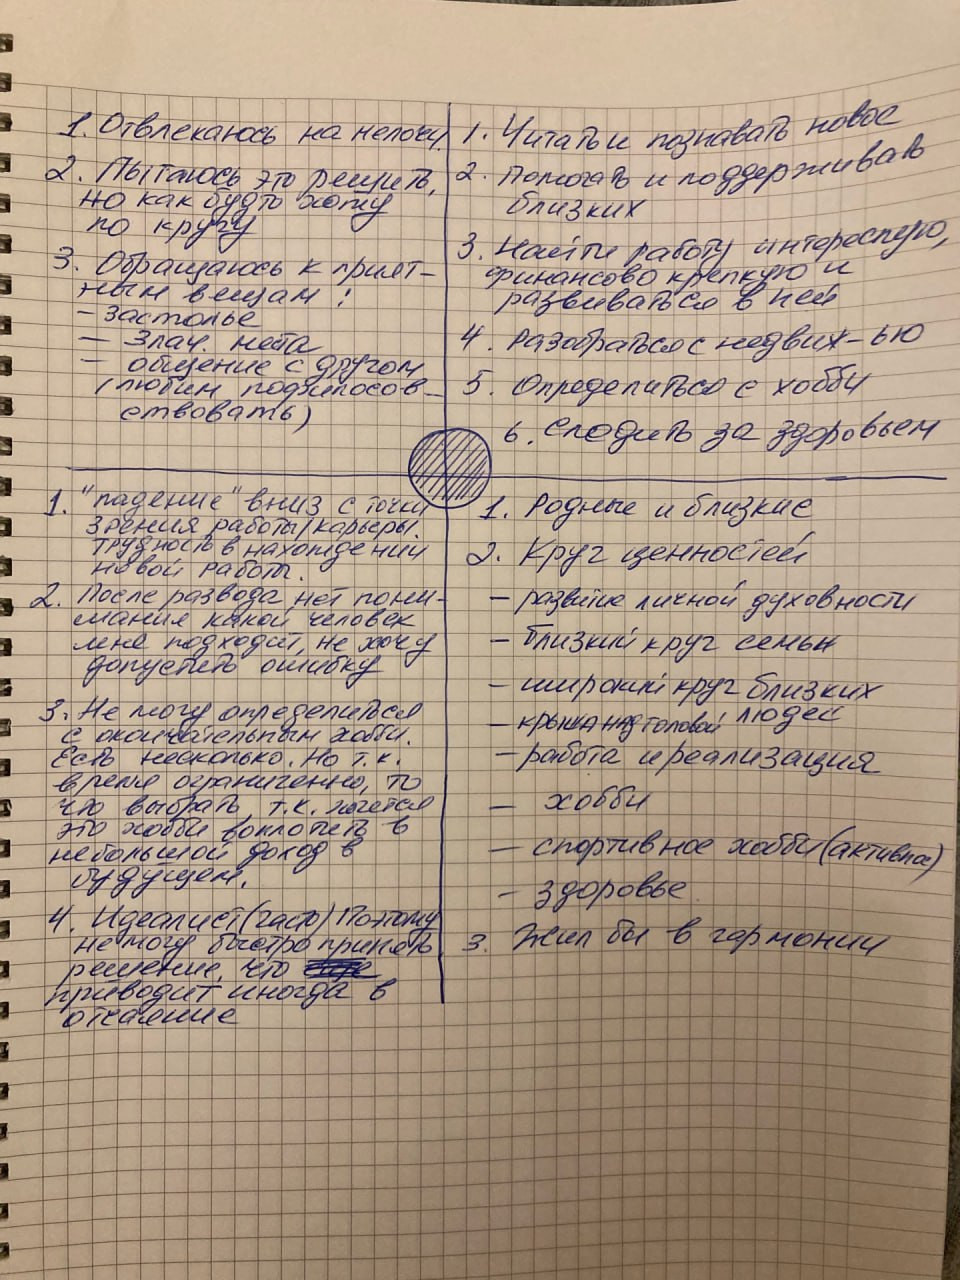 1. Отвлекаюсь на мелочи.
2. Пытаюсь это решить,
но как будто хожу
по кругу
3. Обращаюсь к прият-
ным вещам:
- застолье
- Злач. места
- общение с другом
(любим пофилософ-
ствовать)
1. Читать и познавать новое
2. Помогать и поддерживать
близких
3. Найти работу интересную,
финансово крепкую и
развиваться в ней
4. Разобраться с недвиж-ью
5. Определиться с хобби
6. Следить за здоровьем
1. "падение" вниз с точки
зрения работы/карьеры.
Трудность в нахождении
новой работы.
2. После развода нет пони-
мания какой человек
мне подходит, не хочу
допустить ошибку
3. Не могу определиться
с окончательным хобби.
Есть несколько. Но т.к.
время ограниченно, то
что выбрать т.к. хочется
это хобби воплотить в
небольшой доход в
будущем.
4. Идеалист (часто) Поэтому
не могу быстро принять
решение, что
приводит иногда в
отчаяние
1. Родные и близкие
2. Круг ценностей
- развитие личной духовности
- Близкий круг семьи
- широкий круг близких
людей
- крыша над головой
- работа и реализация
- хобби
- спортивное хобби (активное)
- здоровье
3. Жил бы в гармонии